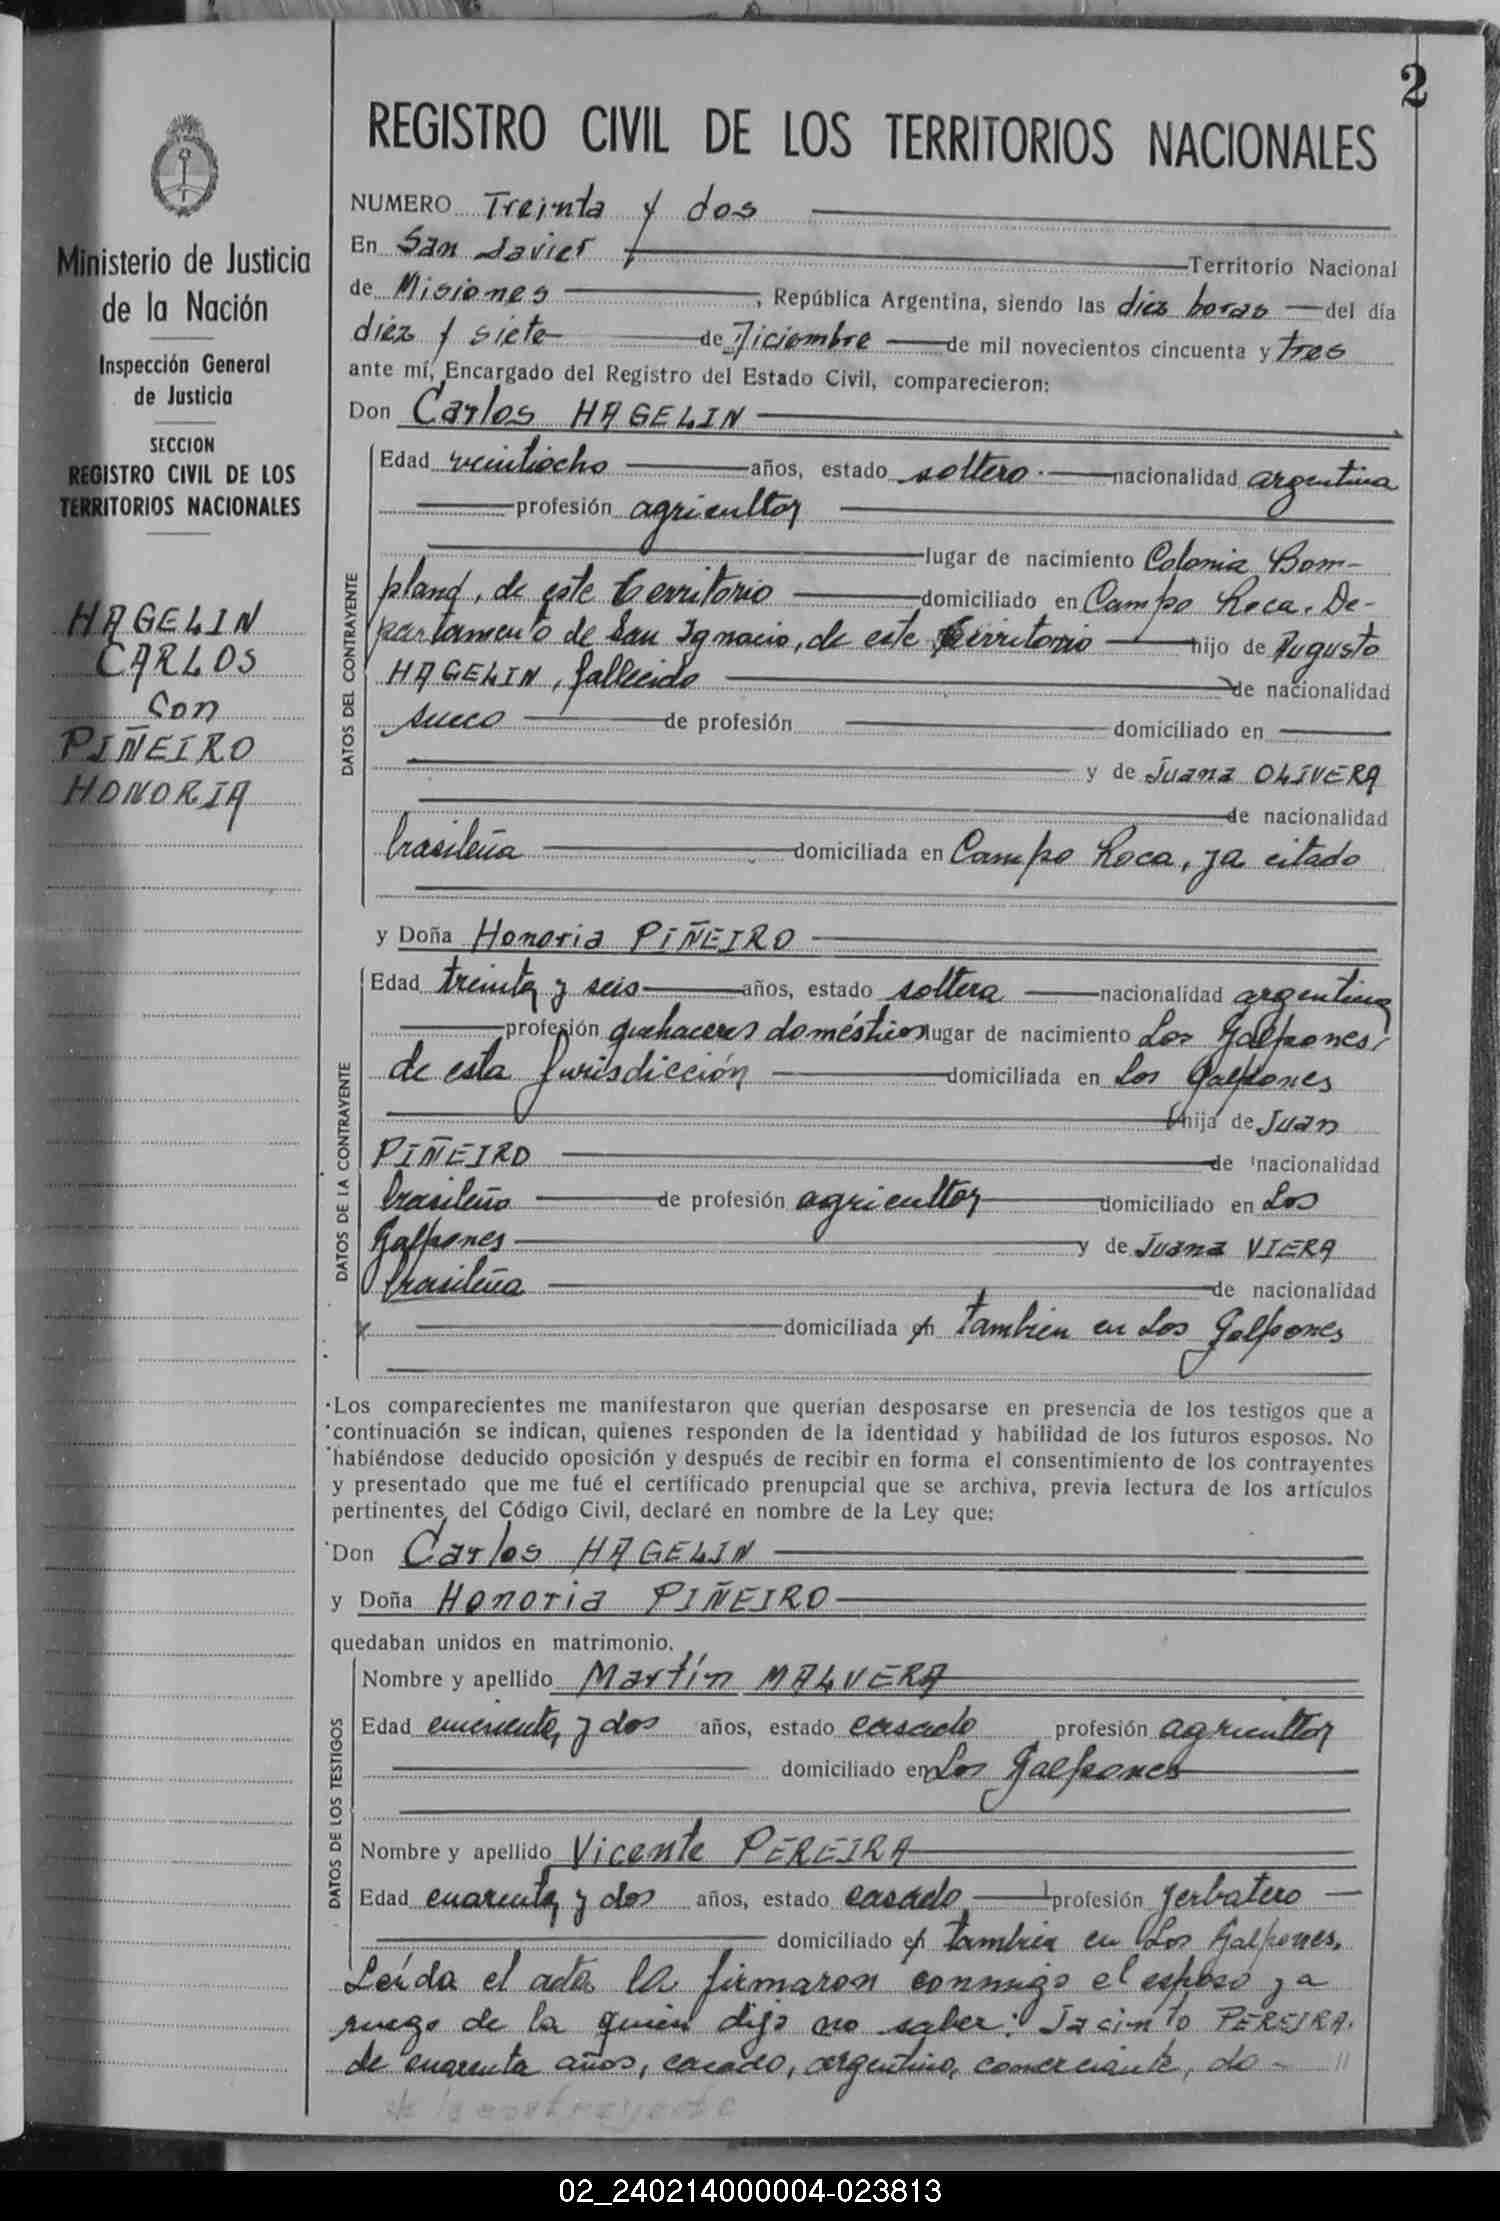 2
REGISTRO CIVIL DE LOS TERRITORIOS NACIONALES
Ministerio de Justicia
de la Nación
Inspección General
de Justicia
SECCION
REGISTRO CIVIL DE LOS
TERRITORIOS NACIONALES
HAGELIN
CARLOS
con
PIÑEIRO
HONORIA
NUMERO Treinta y dos
En San Javier Territorio Nacional
de Misiones, República Argentina, siendo las diez horas del día
diéz y siete de Diciembre de mil novecientos cincuenta y tres
ante mí, Encargado del Registro del Estado Civil, comparecieron:
Don Carlos HAGELIN
DATOS DEL CONTRAYENTE
Edad veintiocho años, estado soltero. nacionalidad argentina
profesión agricultor
lugar de nacimiento Colonia Bom-
pland, de este territorio domiciliado en Campo Roca. De-
partamento de San Ignacio, de este territorio hijo de Augusto
HAGELIN, fallecido de nacionalidad
sueco de profesión domiciliado en
y de Juana OLIVERA
de nacionalidad
brasileña domiciliada en Campo Roca, ya citado
y Doña Honoria PIÑEIRO
DATOS DE LA CONTRAYENTE
Edad treinta y seis años, estado soltera nacionalidad argentina
profesión quehaceres domésticos lugar de nacimiento Los Galpones,
de esta jurisdicción domiciliada en Los Galpones
hija de Juan
PIÑEIRO de nacionalidad
brasileño de profesión agricultor domiciliado en Los
Galpones y de Juana VIERA
brasileña de nacionalidad
domiciliada en tambien en Los Galpones
Los comparecientes me manifestaron que querían desposarse en presencia de los testigos que a
continuación se indican, quienes responden de la identidad y habilidad de los futuros esposos. No
habiéndose deducido oposición y después de recibir en forma el consentimiento de los contrayentes
y presentado que me fué el certificado prenupcial que se archiva, previa lectura de los artículos
pertinentes del Código Civil, declaré en nombre de la Ley que:
Don Carlos HAGELIN
y Doña Honoria PIÑEIRO
quedaban unidos en matrimonio.
DATOS DE LOS TESTIGOS
Nombre y apellido Martín MALVERA
Edad cincuenta y dos años, estado casado profesión agricultor
domiciliado en Los Galpones
Nombre y apellido Vicente PEREIRA
Edad cuarenta y dos años, estado casado profesión yerbatero
domiciliado en tambien en Los Galpones.
Leída el acta la firmaron conmigo el esposo y a
ruego de la quien dijo no saber: Jacinto PEREIRA.
de cuarenta años, casado, argentino, comerciante, do-
de la contrayente
02_240214000004-023813